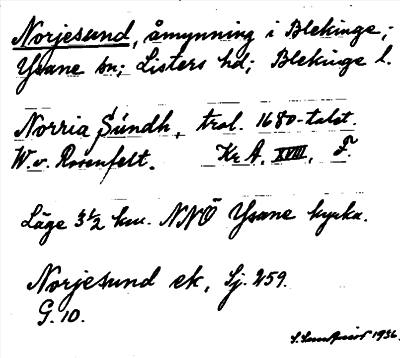 Norjesund, åmynning i Blekinge;
Ysane sn; Listers hd; Blekinge l.
Norria Sündh, trol. 1680-talet.
W. v. Rosenfelt. Kr A, XVIII, F.
Läge 3½ km. NNÖ Ysane kyrka.
Norjesund ek, Sj. 259.
G. 10.
1936.